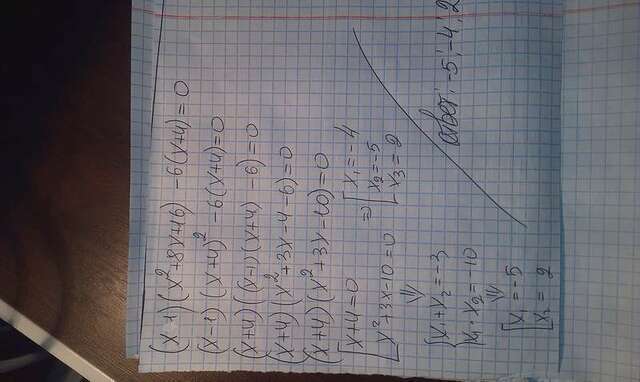 (x-1)(x²+8x+16) -6(x+4)=0
(x-1)(x+4)² -6(x+4)=0
(x+4)((x-1)(x+4) -6)=0
(x+4)(x²+3x-4-6)=0
(x+4)(x²+3x-10)=0
[x+4=0
x²+3x-10=0
=> [x₁=-4
x₂=-5
x₃=2
⇓
{x₁+x₂=-3
x₁·x₂=-10
⇓
[x₁=-5
x₂= 2
ответ: -5; -4; 2